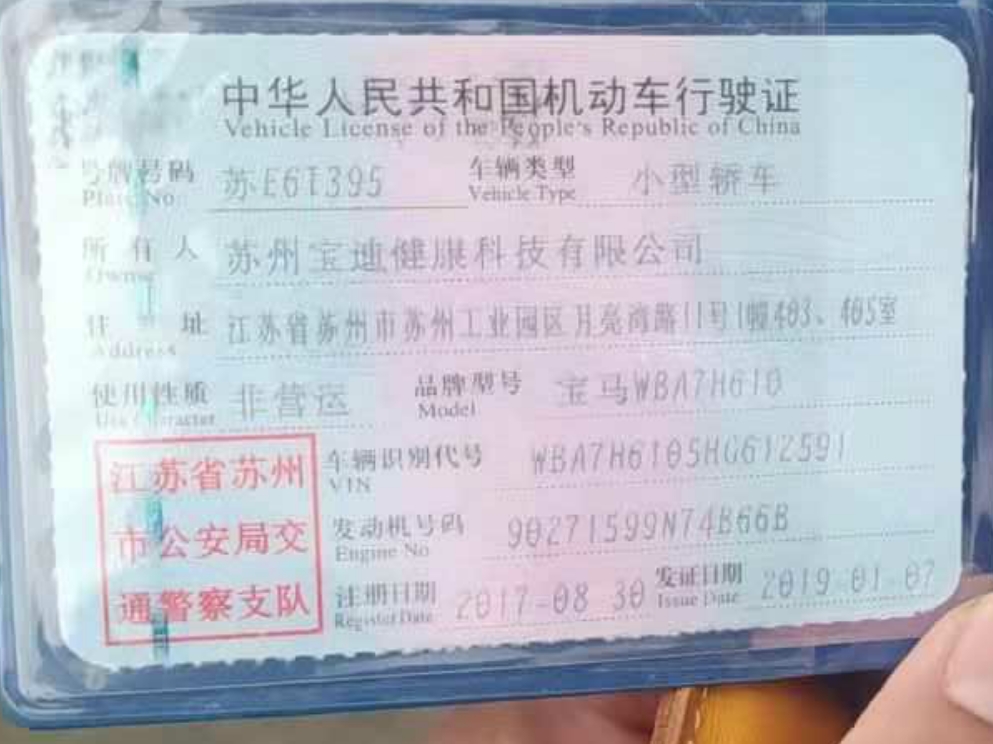 中华人民共和国机动车行驶证
Vehicle License of the People's Republic of China
号牌号码 苏E6T395 车辆类型 小型轿车
Plate No. Vehicle Type
所有人 苏州宝迪健康科技有限公司
Owner
住址 江苏省苏州市苏州工业园区月亮湾路11号1幢403、405室
Address
使用性质 非营运 品牌型号 宝马WBA7H610
Use Character Model
江苏省苏州 车辆识别代号 WBA7H6105HG612591
VIN
市公安局交 发动机号码 90271599N74B66B
Engine No
通警察支队 注册日期 2017-08-30 发证日期 2019-01-07
Register Date Issue Date